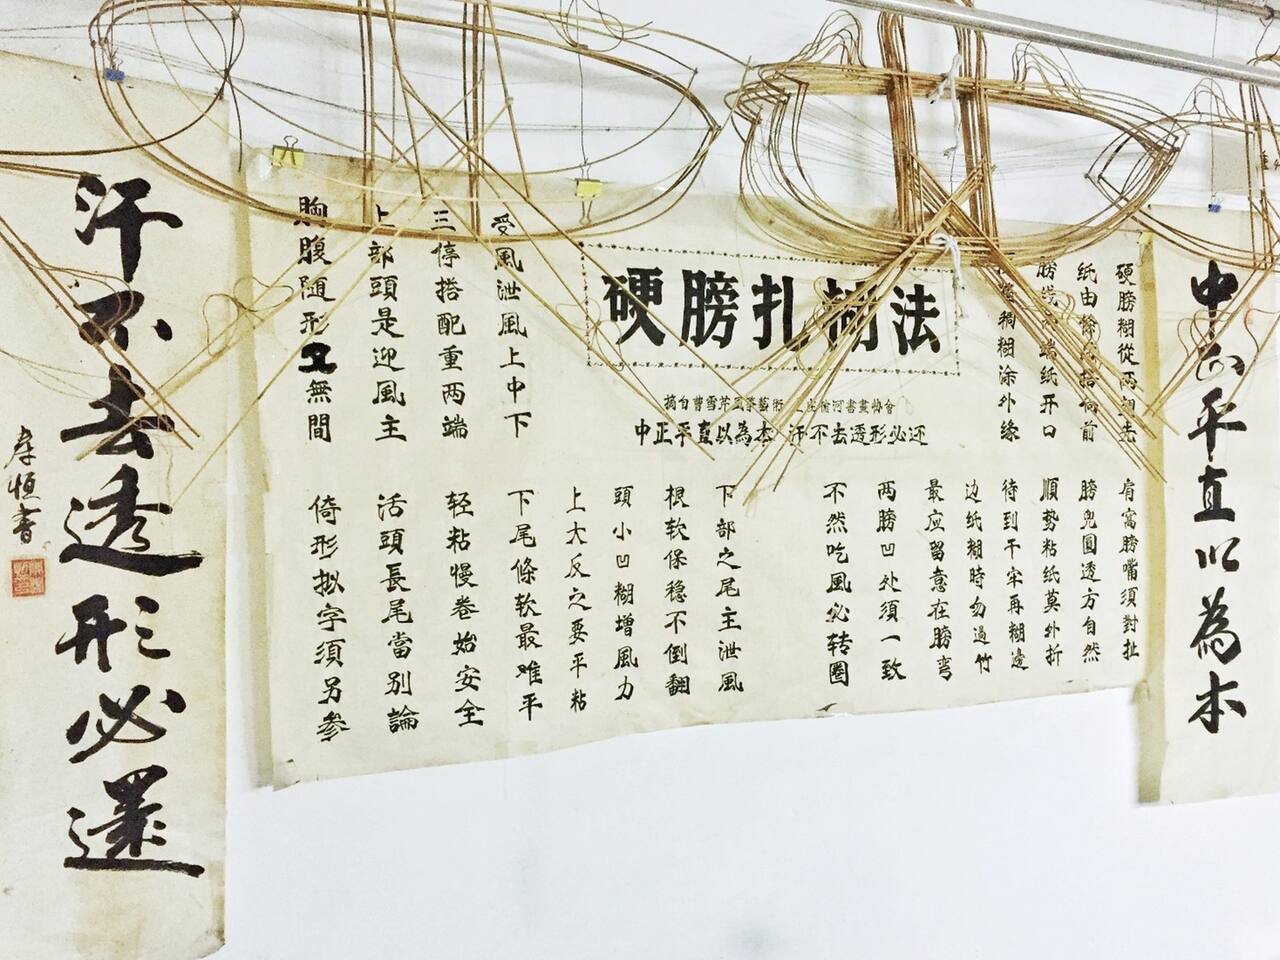 中正平直以為本
硬膀扎糊法
摘自曹雪芹風箏藝術 庄榆河書畫協會
中正平直以為本 汗不去透形必还
硬膀糊從两翅尖
肩窩膀嘴須對扯
纸由條 搭向前
膀兜圓透方自然
膀线两端纸开口
順勢粘纸莫外折
稠糊涂外缘
待到干牢再糊邊
边纸糊時勿過竹
最应留意在膀弯
两膀凹处须一致
不然吃風必转圈
下部之尾主泄風
根软保稳不倒翻
頭小凹糊增風力
上大反之要平粘
受風泄風上中下
下尾條软最难平
三停搭配重两端
轻粘慢卷始安全
上部頭是迎風主
活頭長尾當别論
胸腹随形又無間
倚形拟字須另參
汗不去透形必還
恒書